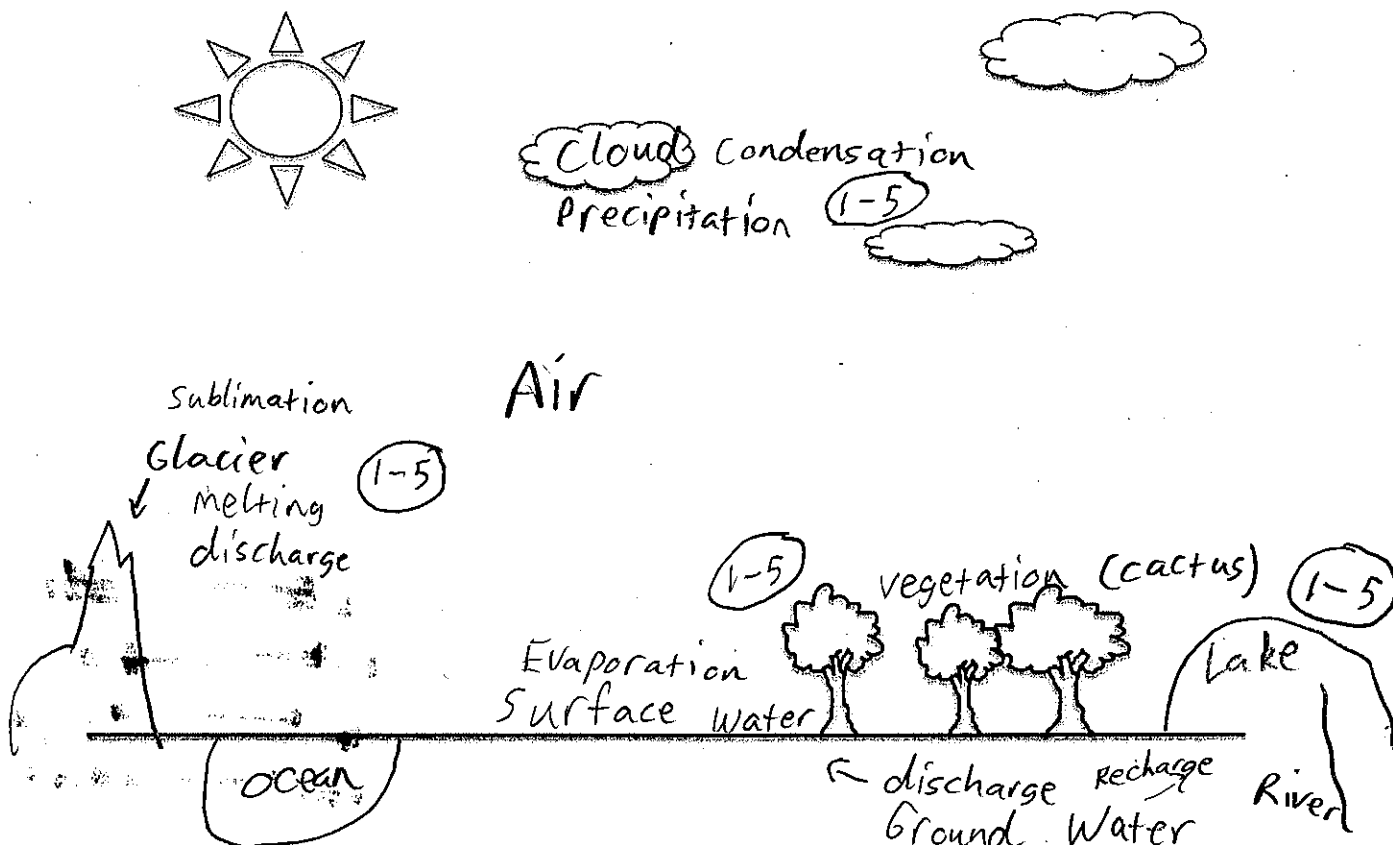 Cloud Condensation
Precipitation 1-5
Air
Sublimation
Glacier 1-5
melting
discharge
1-5 vegetation (cactus) 1-5
Lake
Evaporation
Surface Water
ocean
discharge Recharge
Ground Water
River